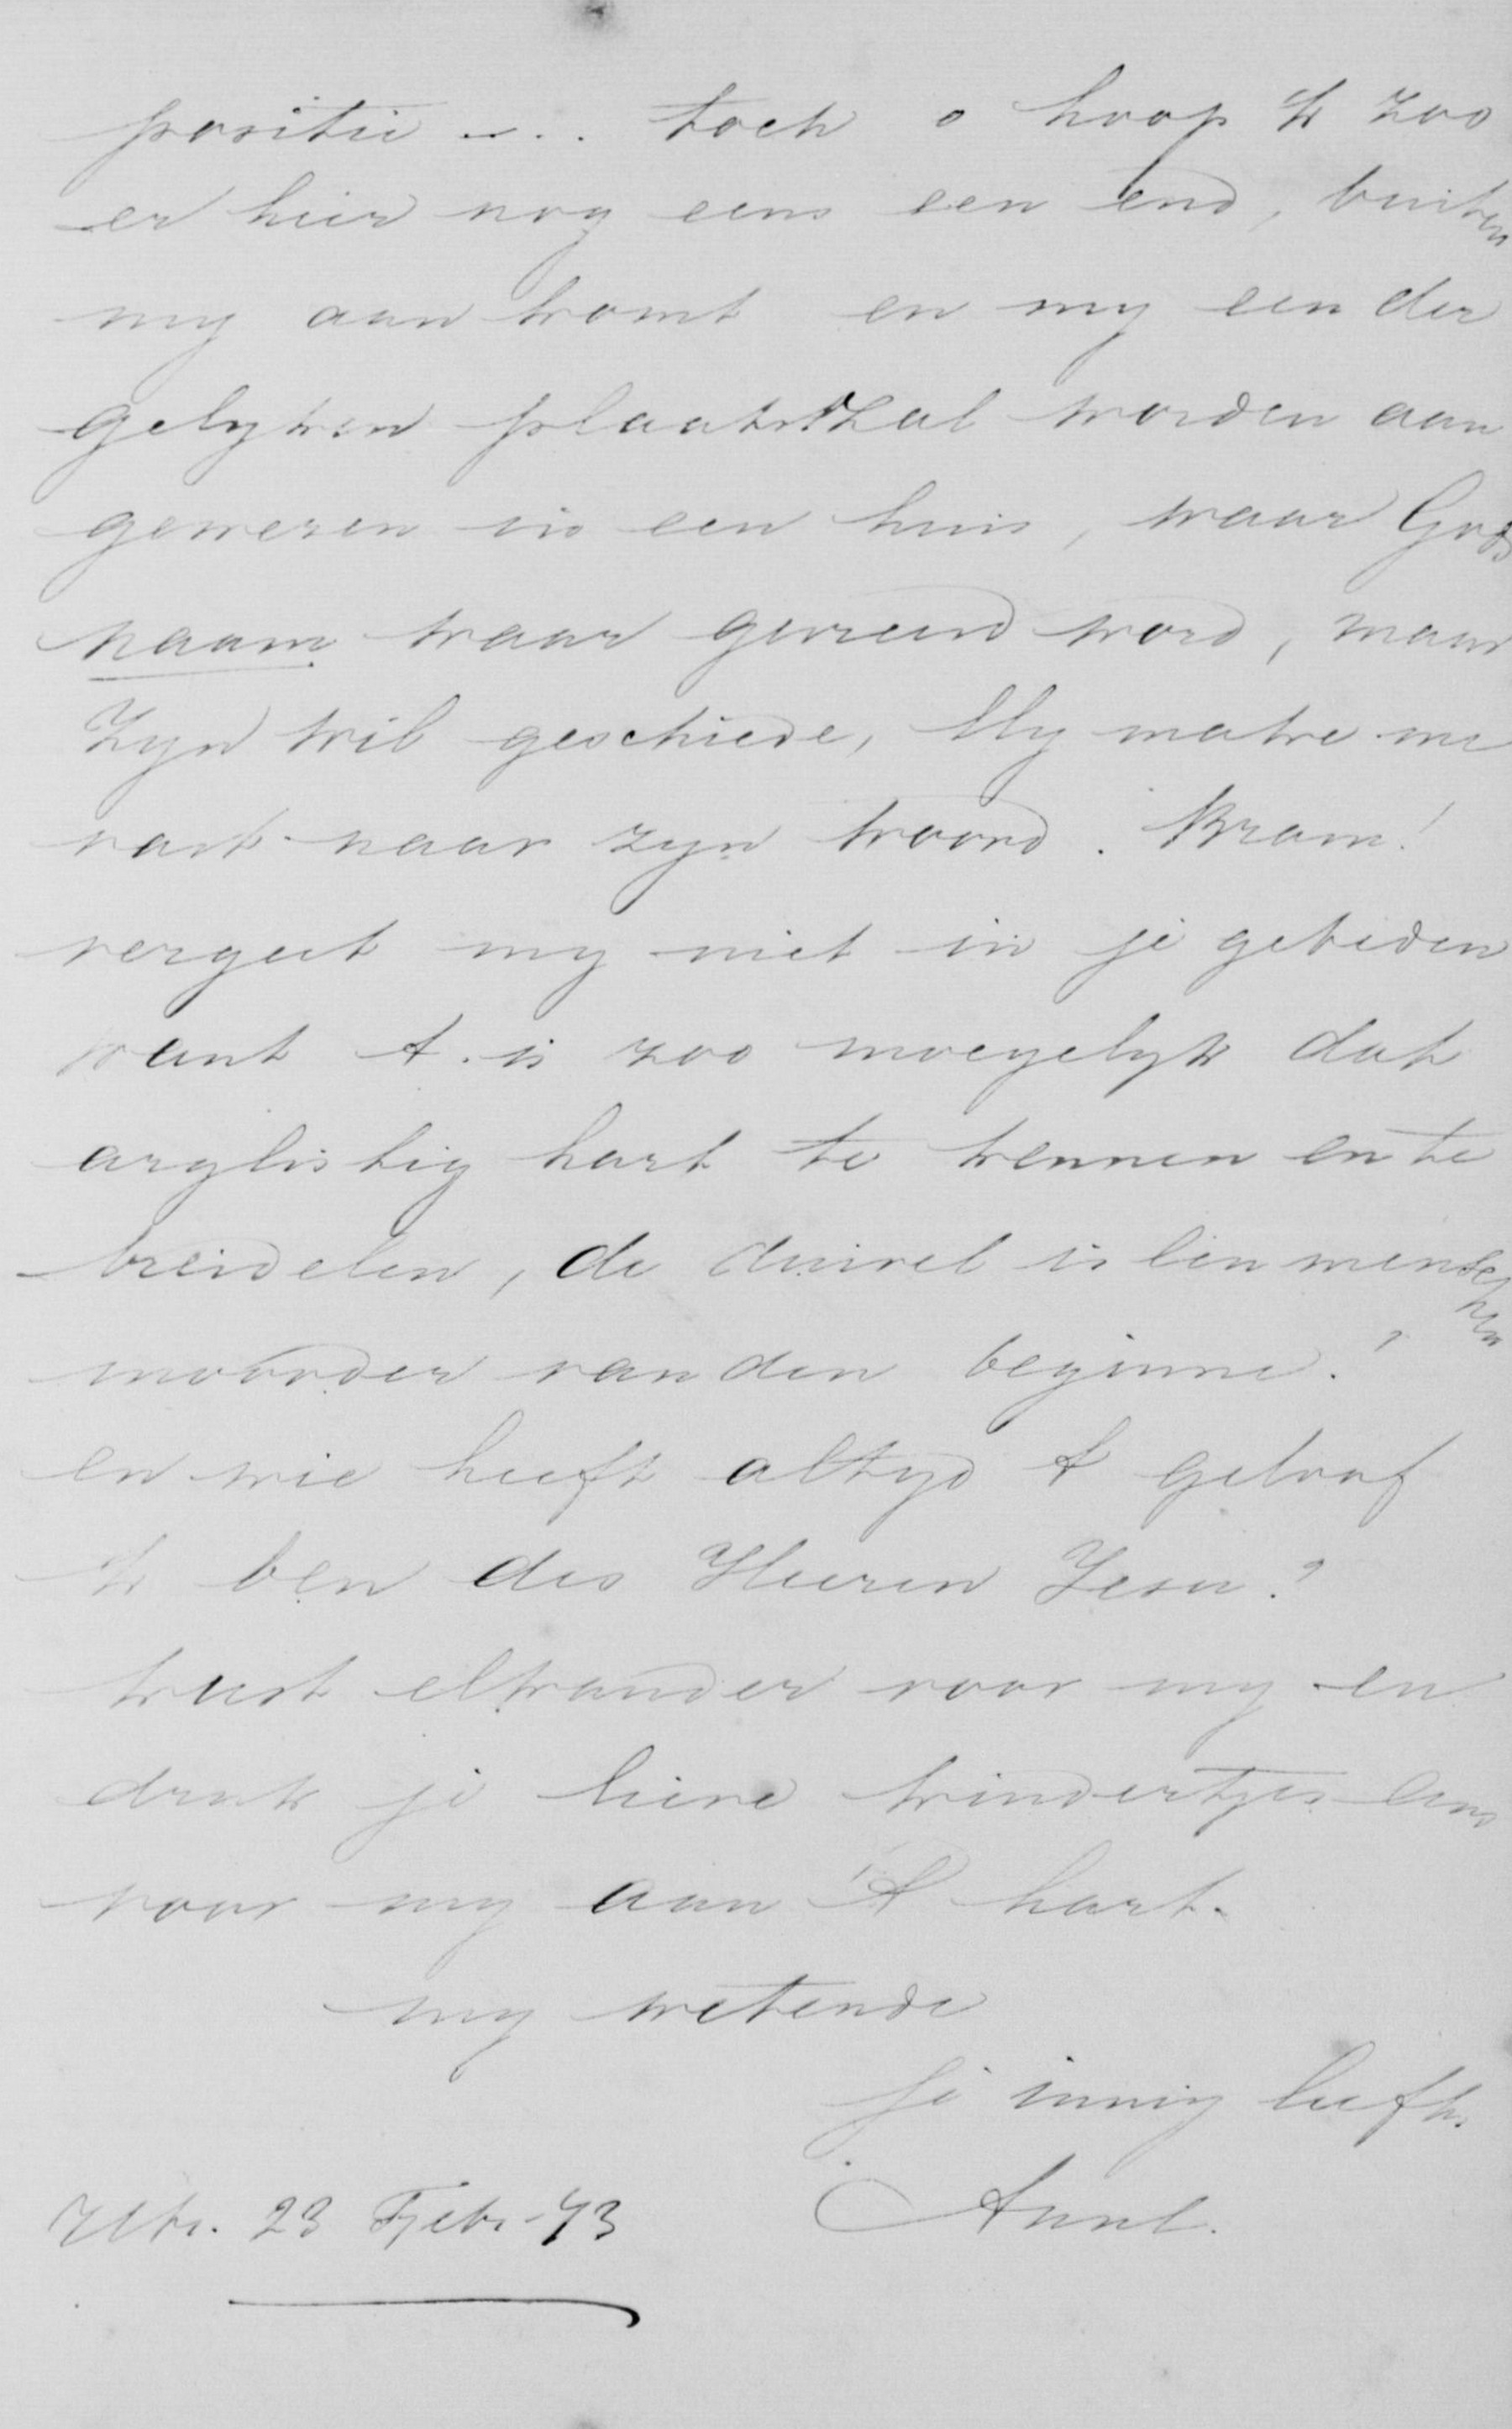 positie ... toch o hoop ik zoo
er hier nog eens een end, buiten
my aan komt en my een der
gelyken plaats zal worden aan
gewezen in een huis, waar Gods
naam waar gevreesd word, maar
Zyn wil geschiede, Hy make me
vast naar zyn woord. Bram!
vergeet my niet in je gebeden
want 't is zoo moeyelyk dat
arglistig hart te kennen en te
breidelen, de duivel is een menschen
moorder van den beginne!
en wie heeft altyd 't geloof
ik ben des Heeren Jesu?
kust elkander voor my en
druk je lieve kindertjes eens
voor my aan 't hart.
my wetende
je innig liefh.
Anne.
Utr. 23 Febr-73